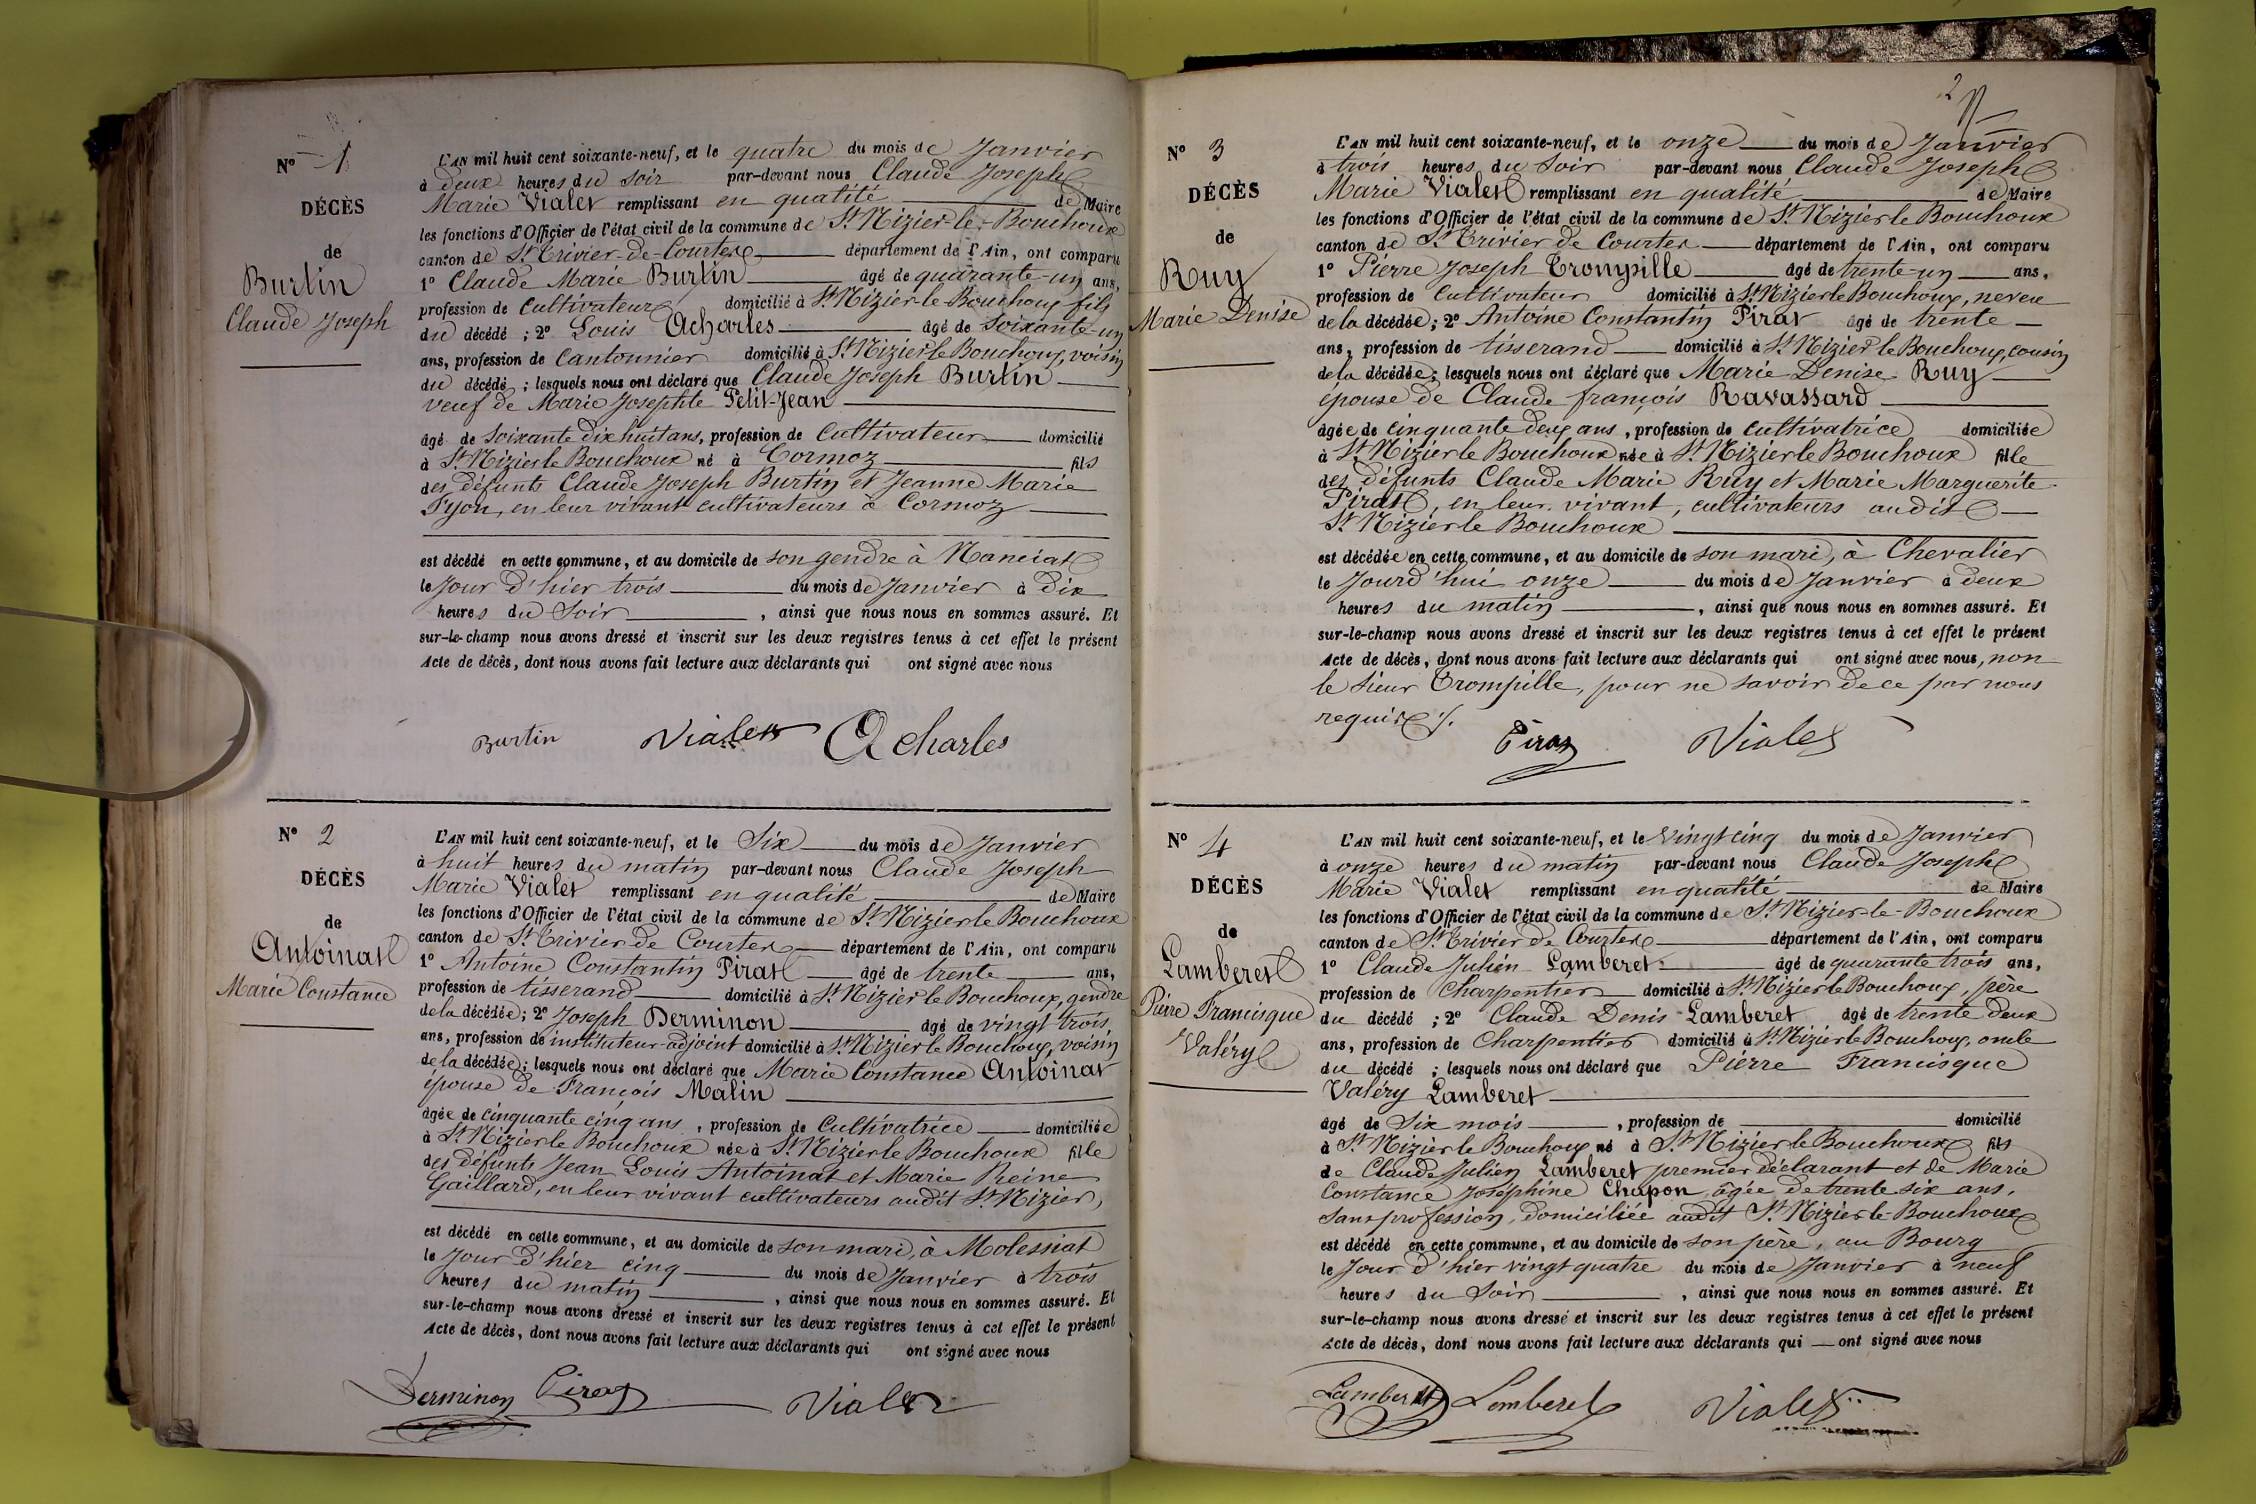 N° 1
DÉCÈS
de
Burtin
Claude Joseph
L'AN mil huit cent soixante-neuf, et le quatre du mois de Janvier
à deux heures du soir par-devant nous Claude Joseph
Marie Vialet remplissant en qualité de Maire
les fonctions d'Officier de l'état civil de la commune de St Nizier-le-Bouchoux
canton de St Trivier-de-Courtes département de l'Ain, ont comparu
1° Claude Marie Burtin âgé de quarante-un ans,
profession de cultivateur domicilié à St Nizier-le-Bouchoux fils
du décédé ; 2° Louis Acharles âgé de soixante-un
ans, profession de Cantonnier domicilié à St Nizier le Bouchoux, voisin
du décédé ; lesquels nous ont déclaré que Claude Joseph Burtin
veuf de Marie Josephte Petit-Jean
âgé de soixante dix huit ans, profession de Cultivateur domicilié
à St Nizier le Bouchoux né à Cormoz fils
des défunts Claude Joseph Burtin et Jeanne Marie
Pyon, en leur vivant cultivateurs à Cormoz
est décédé en cette commune, et au domicile de son gendre à Manciat
le Jour d'hier trois du mois de Janvier à dix
heures du Soir , ainsi que nous nous en sommes assuré. Et
sur-le-champ nous avons dressé et inscrit sur les deux registres tenus à cet effet le présent
Acte de décès, dont nous avons fait lecture aux déclarants qui ont signé avec nous
Burtin Vialet Acharles
N° 2
DÉCÈS
de
Antoinat
Marie Constance
L'AN mil huit cent soixante-neuf, et le Six du mois de Janvier
à huit heures du matin par-devant nous Claude Joseph
Marie Vialet remplissant en qualité de Maire
les fonctions d'Officier de l'état civil de la commune de St Nizier le Bouchoux
canton de St Trivier de Courtes département de l'Ain, ont comparu
1° Antoine Constantin Pirat âgé de trente ans,
profession de tisserand domicilié à St Nizier le Bouchoux, gendre
de la décédée ; 2° Joseph Derminon âgé de vingt trois,
ans, profession de instituteur-adjoint domicilié à St Nizier le Bouchoux, voisin
de la décédée ; lesquels nous ont déclaré que Marie Constance Antoinat
épouse de François Malin
âgée de cinquante cinq ans , profession de Cultivatrice domiciliée
à St Nizier le Bouchoux née à St Nizier le Bouchoux fille
des défunts Jean Louis Antoinat et Marie Reine
Gaillard, en leur vivant cultivateurs audit St Nizier,
est décédé en cette commune, et au domicile de son mari, à Molessiat
le Jour d'hier cinq du mois de Janvier à trois
heures du matin , ainsi que nous nous en sommes assuré. Et
sur-le-champ nous avons dressé et inscrit sur les deux registres tenus à cet effet le présent
Acte de décès, dont nous avons fait lecture aux déclarants qui ont signé avec nous
Derminon Pirat Vialet
2
N° 3
DÉCÈS
de
Ruy
Marie Denise
L'AN mil huit cent soixante-neuf, et le onze du mois de Janvier
à trois heures du Soir par-devant nous Claude Joseph
Marie Vialet remplissant en qualité de Maire
les fonctions d'Officier de l'état civil de la commune de St Nizier le Bouchoux
canton de St Trivier de Courtes département de l'Ain, ont comparu
1° Pierre Joseph Trompille âgé de trente-un ans,
profession de Cultivateur domicilié à St Nizier le Bouchoux, neveu
de la décédée ; 2° Antoine Constantin Pirat âgé de trente
ans, profession de tisserand domicilié à St Nizier le Bouchoux, cousin
de la décédée ; lesquels nous ont déclaré que Marie Denise Ruy
épouse de Claude françois Ravassard
âgée de cinquante deux ans , profession de cultivatrice domiciliée
à St Nizier le Bouchoux née à St Nizier le Bouchoux fille
des défunts Claude Marie Ruy et Marie Marguerite
Pirat, en leur vivant, cultivateurs audit
St Nizier le Bouchoux
est décédée en cette commune, et au domicile de son mari, à Chevalier
le Jourd'hui onze du mois de Janvier à deux
heures du matin , ainsi que nous nous en sommes assuré. Et
sur-le-champ nous avons dressé et inscrit sur les deux registres tenus à cet effet le présent
Acte de décès, dont nous avons fait lecture aux déclarants qui ont signé avec nous, non
le sieur Trompille, pour ne savoir de ce par nous
requis ./.
Pirat Vialet
N° 4
DÉCÈS
de
Lamberet
Pierre Francisque
Valéry
L'AN mil huit cent soixante-neuf, et le Vingt cinq du mois de Janvier
à onze heures du matin par-devant nous Claude Joseph
Marie Vialet remplissant en qualité de Maire
les fonctions d'Officier de l'état civil de la commune de St Nizier-le-Bouchoux
canton de St Trivier de Courtes département de l'Ain, ont comparu
1° Claude Julien Lamberet âgé de quarante trois ans,
profession de Charpentier domicilié à St Nizier le Bouchoux, père
du décédé ; 2° Claude Denis Lamberet âgé de trente deux
ans, profession de Charpentier domicilié à St Nizier le Bouchoux, oncle
du décédé ; lesquels nous ont déclaré que Pierre Francisque
Valéry Lamberet
âgé de Six mois , profession de domicilié
à St Nizier le Bouchoux né à St Nizier le Bouchoux fils
de Claude Julien Lamberet premier déclarant et de Marie
Constance Joséphine Chapon, âgée de trente six ans,
sans profession, domiciliée audit St Nizier le Bouchoux
est décédé en cette commune, et au domicile de son père, au Bourg
le Jour d'hier vingt quatre du mois de Janvier à neuf
heures du Soir , ainsi que nous nous en sommes assuré. Et
sur-le-champ nous avons dressé et inscrit sur les deux registres tenus à cet effet le présent
Acte de décès, dont nous avons fait lecture aux déclarants qui ont signé avec nous
Lamberet Lamberet Vialet